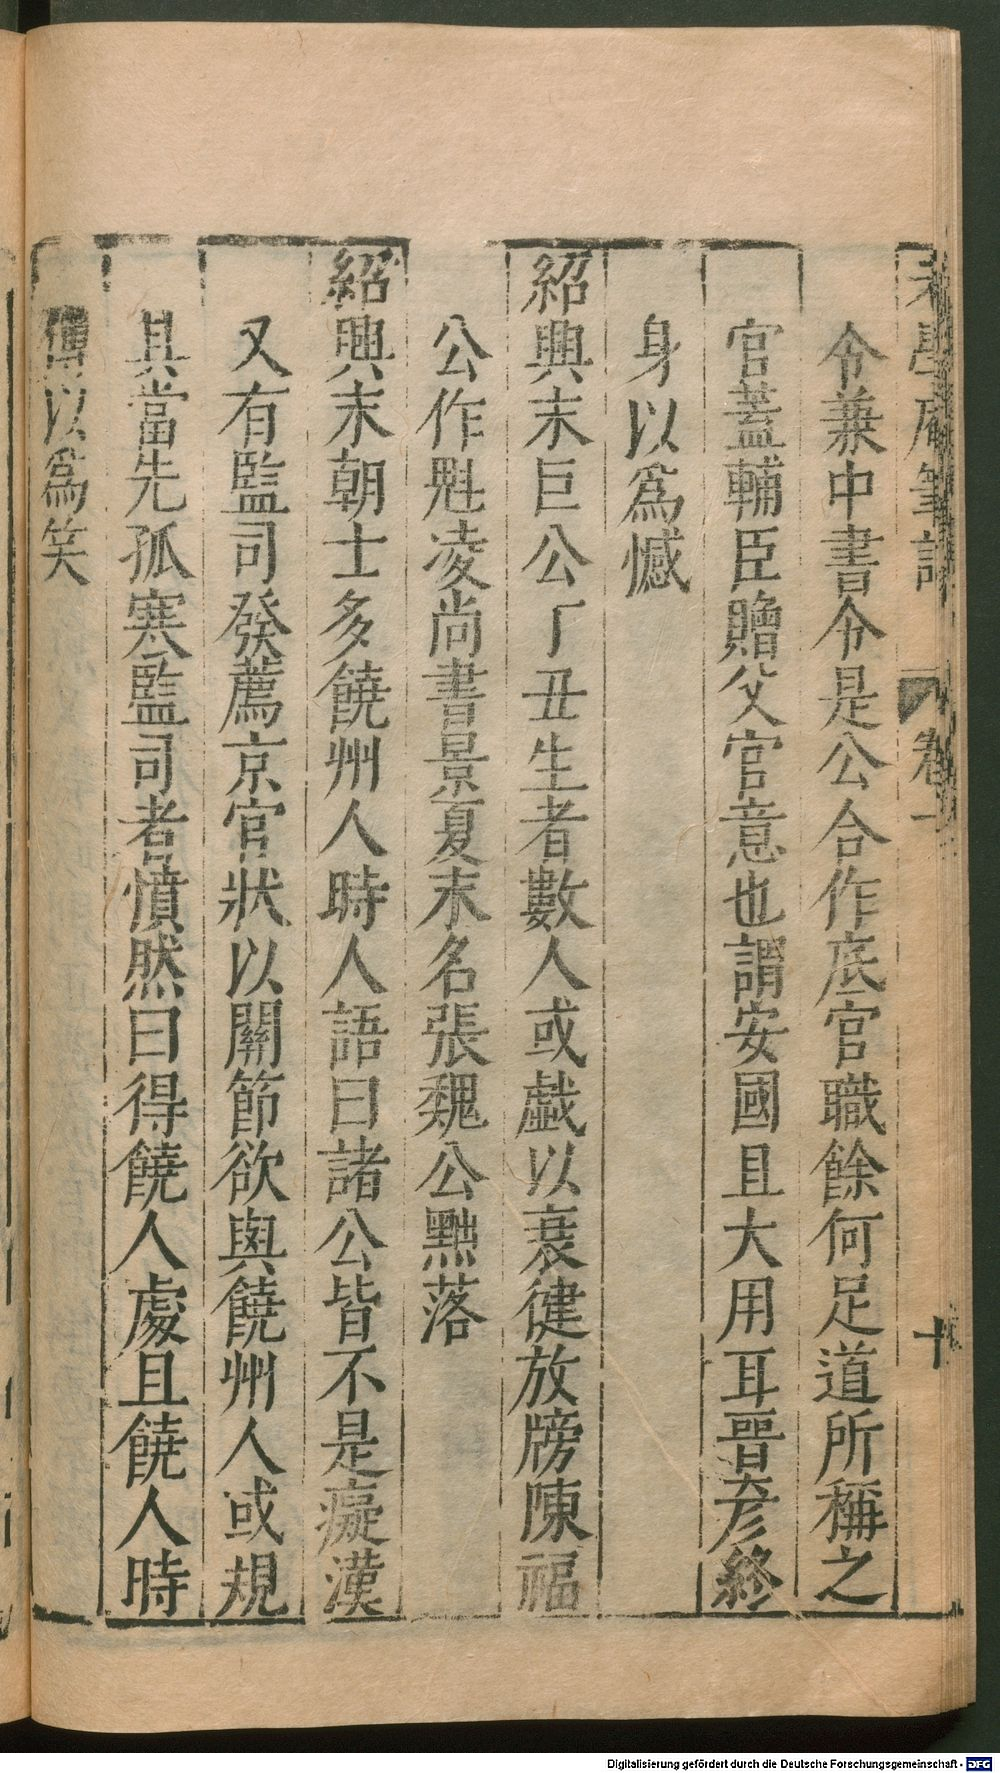 老學庵筆記 卷一 十
令兼中書令是公合作底官職餘何足道所稱之
官蓋輔臣贈父官意也謂安國且大用耳晉彥終
身以爲憾
紹興末巨公丁丑生者數人或戯以衰健放牓陳福
公作魁凌尚書景夏末名張魏公黜落
紹興末朝士多饒州人時人語曰諸公皆不是癡漢
又有監司發薦京官狀以關節欲與饒州人或規
其當先孤寒監司者憤然曰得饒人處且饒人時
傳以爲笑
Digitalisierung gefördert durch die Deutsche Forschungsgemeinschaft - DFG